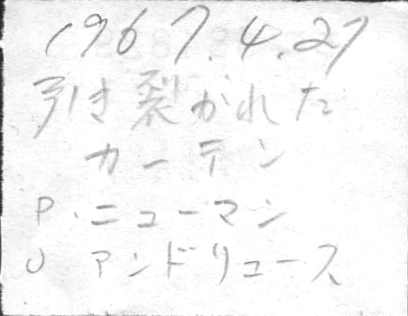 1967.4.27
引き裂かれた
カーテン
P.ニューマン
J アンドリュース